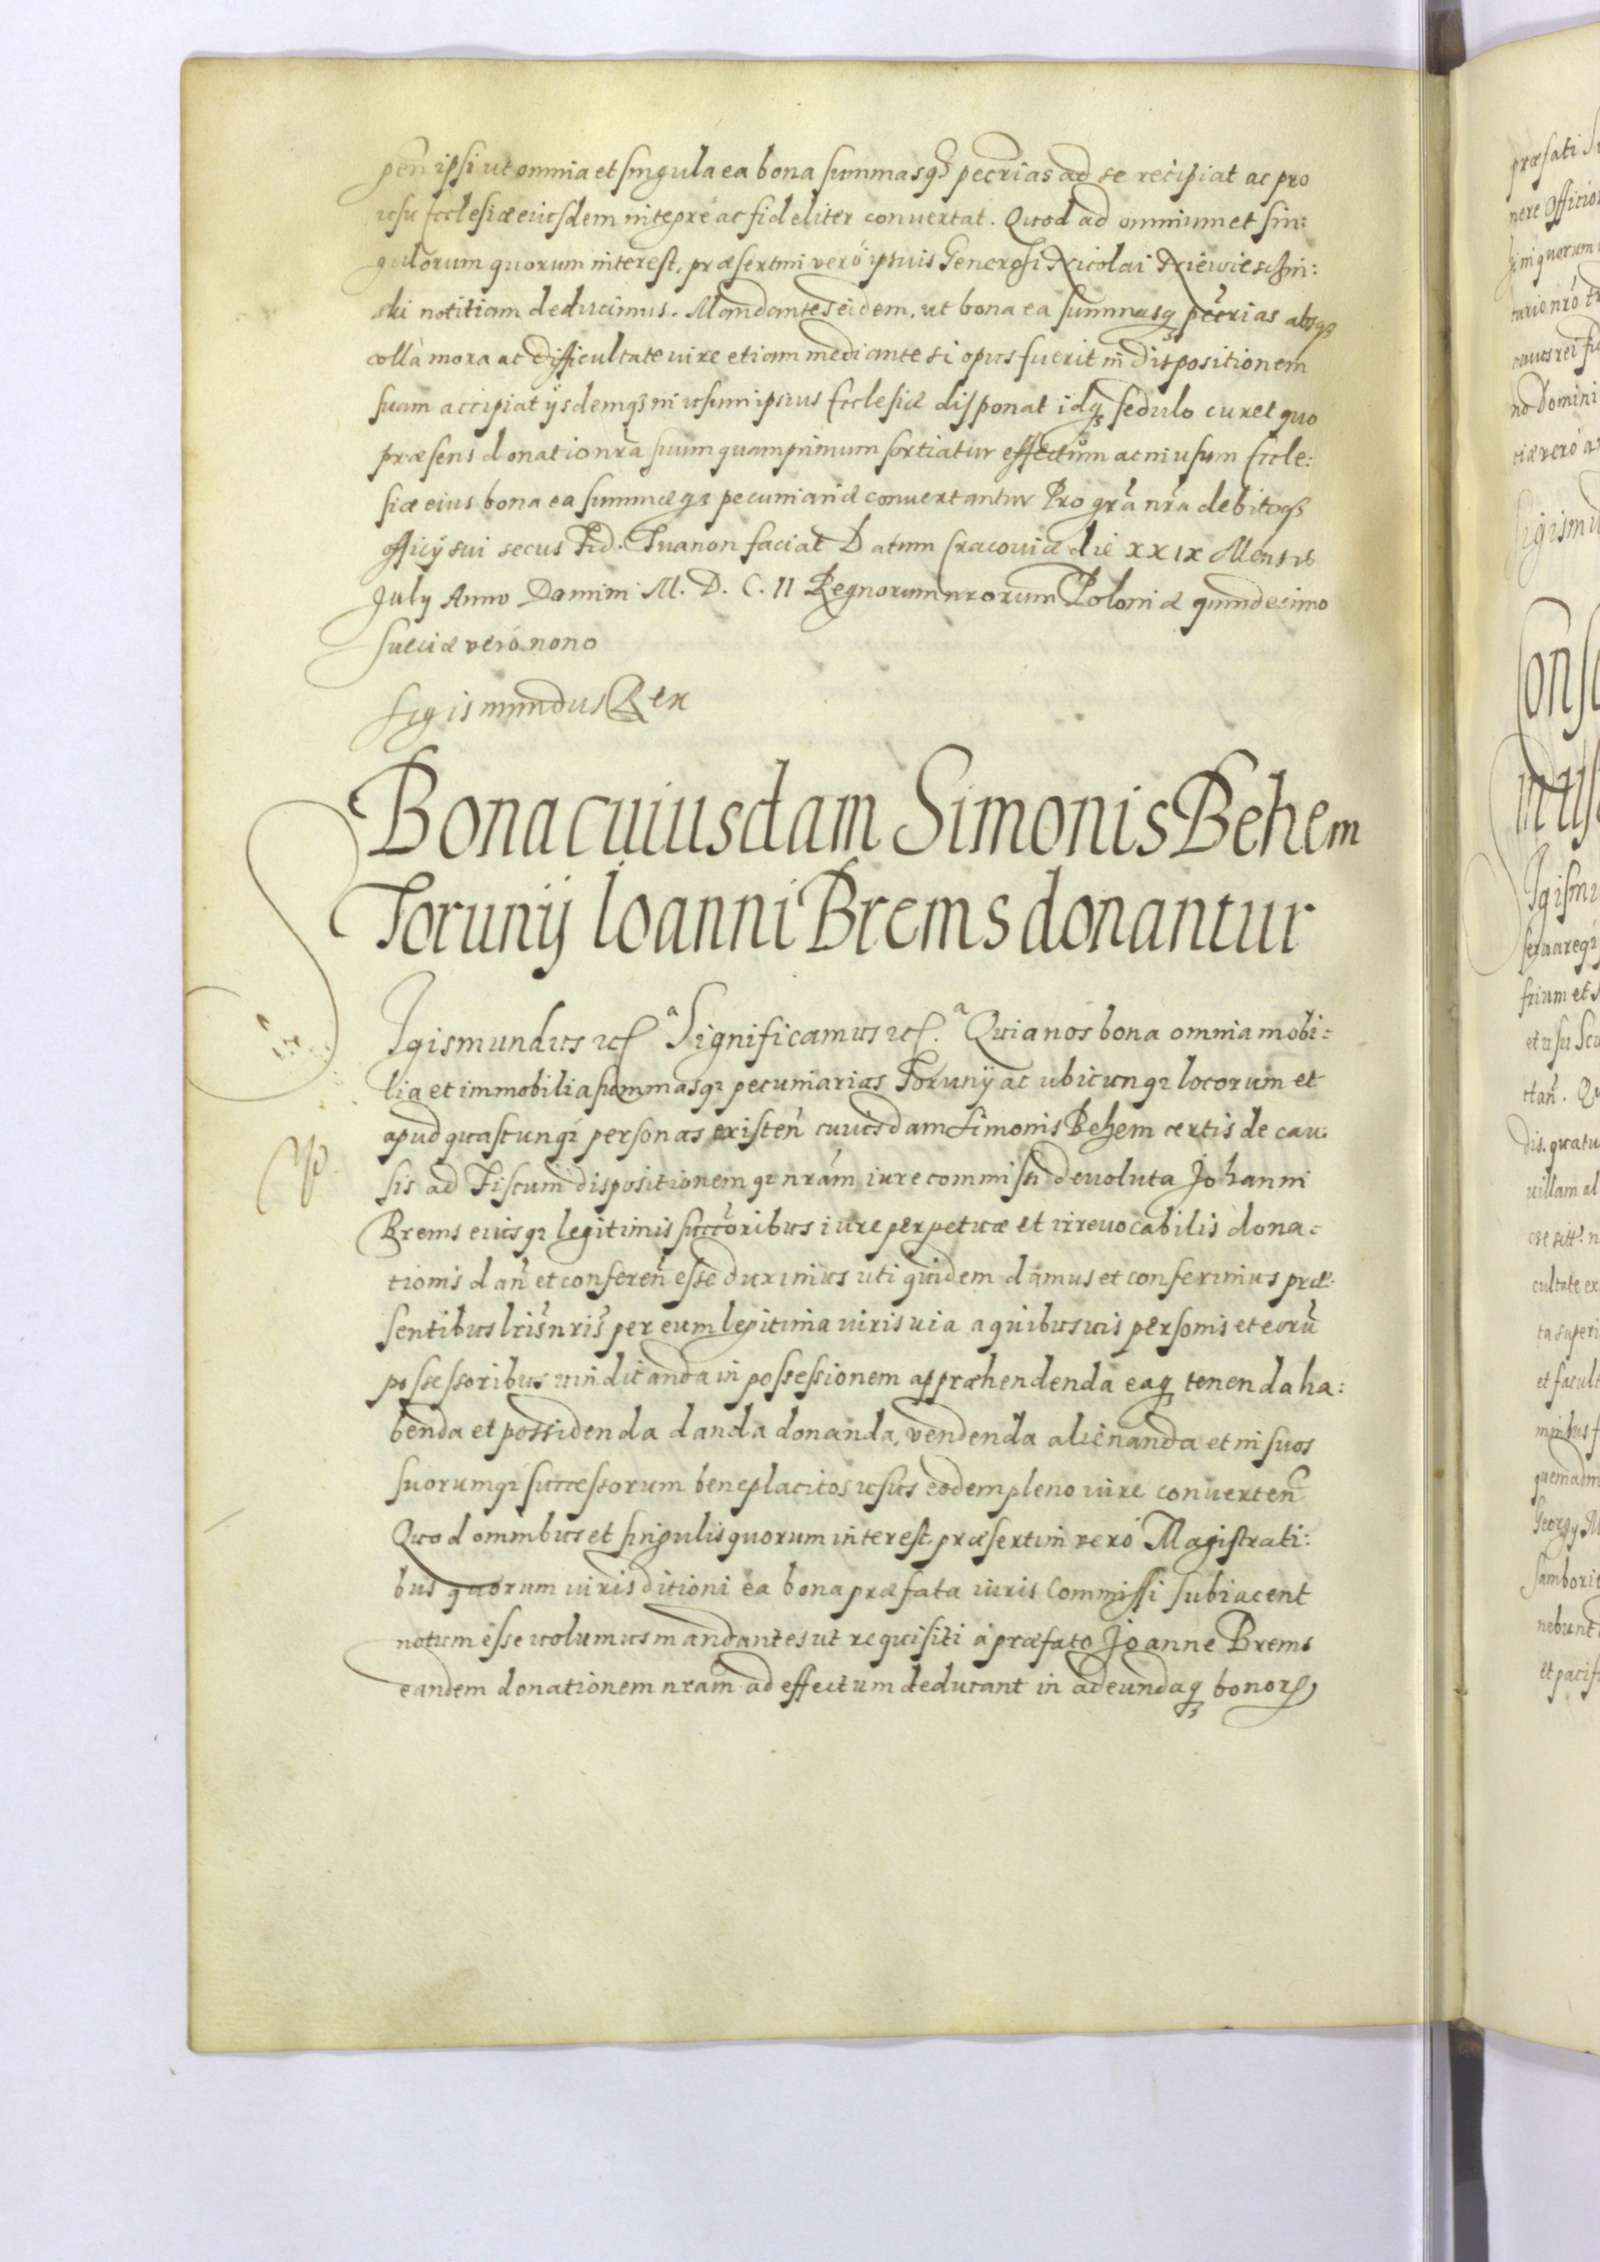 pen̄ ipsi ut omnia et singula ea bona summasq₃ pecrias ad se recipiat ac pro
usu Ecclesiæ eiusdem integre ac fideliter convertat. Quod ad omnium et sin:
gulorum quorum interest, præsertim verò ipsius Generosi Nicolai Niewieschin:
ski notitiam deducimus. Mandantes eidem, ut bona ea summasq₃ pecrias absq₃
ulla mora ac difficultate iure etiam mediante si opus fuerit in dispositionem
suam accipiat ijsdemq₃ in usum ipsius Ecclesiæ disponat idq₃ sedulo curet quo
præsens donatio nrā suum quamprimum sortiatur effectum ac in usum Eccle:
siæ eius bona ea summæq₃ pecuniariæ convertantur Pro grā nrā debitoq₃
officij sui secus Fid. Tua non faciat Datum Cracoviæ die XXIX Mensis
July Anno Domini M. D. C. II Regnorum nrorum Poloniæ quindecimo
Sueciæ verò nono
Sigismundus Rex
Bona cuiusdam Simonis Behem
Torunij Ioanni Brems donantur
Sigismundus etc. Significamus etc. Quia nos bona omnia mobi:
lia et immobilia summasq₃ pecuniarias Torunij ac ubicunq₃ locorum et
apud quascunq₃ personas existen̄ cuiusdam Simonis Behem certis de cau:
sis ad Fiscum dispositionemq₃ nrām iure commissi devoluta Johanni
Brems eiusq₃ legitimis succ̄oribus iure perpetuæ et irrevocabilis dona:
tionis dan̄ et conferen̄ esse duximus uti quidem damus et conferimus præ:
sentibus lris̄ nris̄ per eum legitima iuris via a quibusvis personis et eorū
possessoribus vindicanda in possessionem appræhendenda eaq₃ tenenda ha:
benda et possidenda danda donanda, vendenda alienanda et in suos
suorumq₃ successorum beneplacitos usus eodem pleno iure converten̄
Quod omnibus et singulis quorum interest, præsertim verò Magistrati:
bus quorum iurisditioni ea bona præfata iuris Commissi subiacent
notum esse volumus mandantes ut requisiti à præfato Joanne Brems
eandem donationem nram ad effectum deducant in adeundaq₃ bonorꝝ